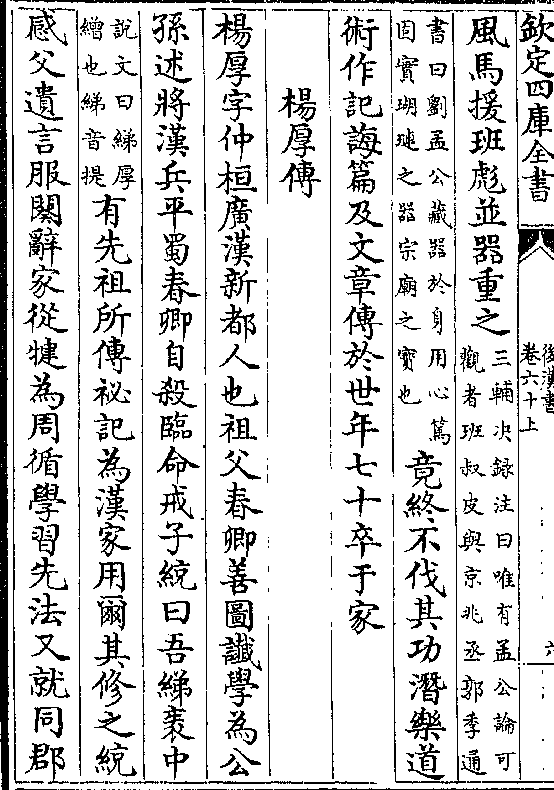 欽定四庫全書
後漢書
卷六十上
六
風馬援班彪並器重之
三輔決録注曰唯有孟公論可
觀者班叔皮與京兆丞郭季通
書曰劉孟公藏器於身用心篤
固實瑚璉之器宗廟之寶也
竟終不伐其功潛樂道
術作記誨篇及文章傳於世年七十卒于家
楊厚傳
楊厚字仲桓廣漢新都人也祖父春卿善圖讖學為公
孫述將漢兵平蜀春卿自殺臨命戒子統曰吾綈袠中
說文曰綈厚
繒也綈音提
有先祖所傳祕記為漢家用爾其修之統
感父遺言服闋辭家從犍為周循學習先法又就同郡